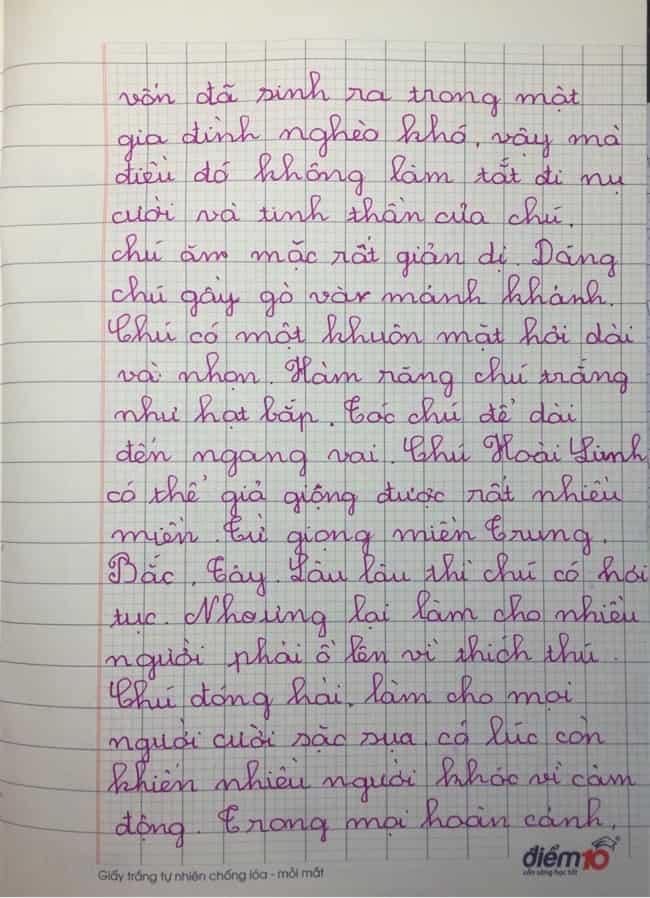 vốn đã sinh ra trong một
gia đình nghèo khó, vậy mà
điều đó không làm tắt đi nụ
cười và tinh thần của chú.
chú ăm mặc rất giản dị. Dáng
chú gầy gò vàr mảnh khảnh.
Chú có một khuôn mặt hơi dài
và nhọn. Hàm răng chú trắng
như hạt bắp. Tóc chú để dài
đến ngang vai. Chú Hoài Linh
có thể giả giọng được rất nhiều
miền. Từ giọng miền Trung,
Bắc, Tây. Lâu lâu thì chú có hơi
tục. Nhơưng lại làm cho nhiều
người phải ồ lên vì thích thú.
Chú đóng hài, làm cho mọi
người cười sặc sụa, có lúc còn
khiến nhiều người khóc vì cảm
động. Trong mọi hoàn cảnh,
Giấy trắng tự nhiên chống lóa - mỏi mắt
điểm10
vẫn sáng học tốt